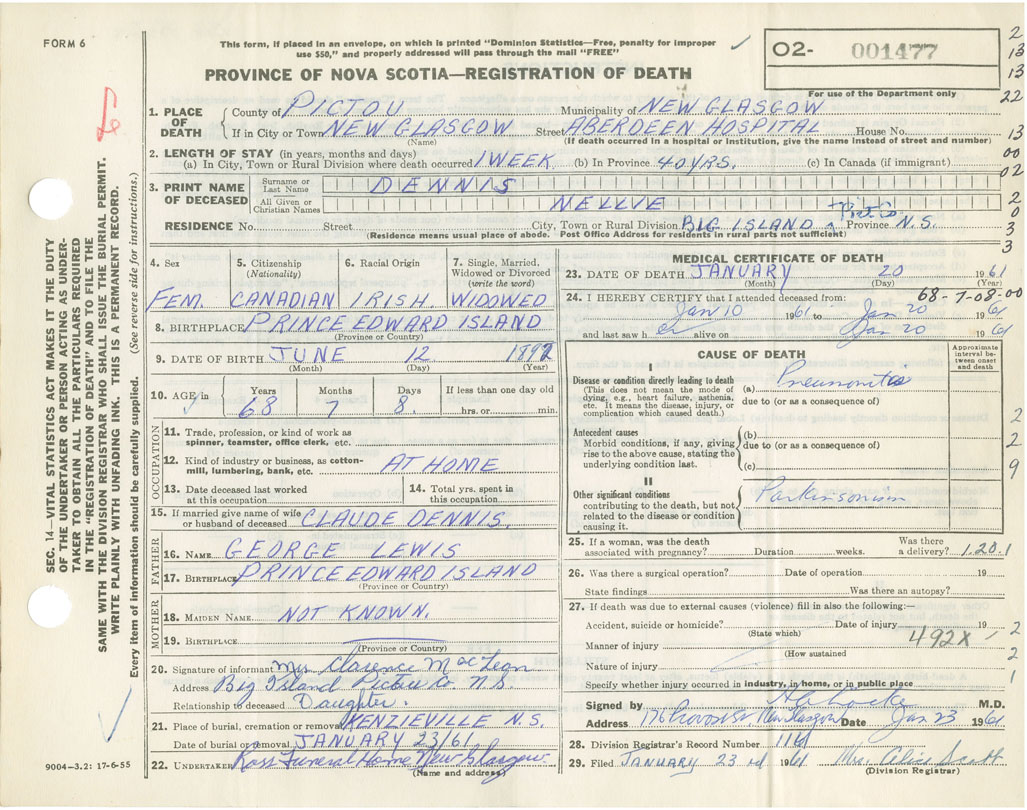 FORM 6
This form, if placed in an envelope, on which is printed "Dominion Statistics—Free, penalty for improper
use $50," and properly addressed will pass through the mail "FREE"
PROVINCE OF NOVA SCOTIA—REGISTRATION OF DEATH
O2- 001477
For use of the Department only
2
13
13
22
13
00
02
2
0
3
3
SEC. 14—VITAL STATISTICS ACT MAKES IT THE DUTY
OF THE UNDERTAKER OR PERSON ACTING AS UNDER-
TAKER TO OBTAIN ALL THE PARTICULARS REQUIRED
IN THE "REGISTRATION OF DEATH" AND TO FILE THE
SAME WITH THE DIVISION REGISTRAR WHO SHALL ISSUE THE BURIAL PERMIT.
WRITE PLAINLY WITH UNFADING INK. THIS IS A PERMANENT RECORD.
Every item of information should be carefully supplied. (See reverse side for instructions.)
1. PLACE OF DEATH
County of PICTOU Municipality of NEW GLASGOW
If in City or Town NEW GLASGOW Street ABERDEEN HOSPITAL House No.
(Name) (If death occurred in a hospital or institution, give the name instead of street and number)
2. LENGTH OF STAY (in years, months and days)
(a) In City, Town or Rural Division where death occurred 1 WEEK (b) In Province 40 YRS. (c) In Canada (if immigrant)
3. PRINT NAME OF DECEASED
Surname or Last Name DENNIS
All Given or Christian Names NELLIE
RESIDENCE No. Street City, Town or Rural Division BIG ISLAND Pict. Co Province N.S.
(Residence means usual place of abode. Post Office Address for residents in rural parts not sufficient)
4. Sex 5. Citizenship (Nationality) 6. Racial Origin 7. Single, Married, Widowed or Divorced (write the word)
FEM. CANADIAN IRISH. WIDOWED
8. BIRTHPLACE PRINCE EDWARD ISLAND
(Province or Country)
9. DATE OF BIRTH JUNE 12 1892
(Month) (Day) (Year)
10. AGE in Years Months Days If less than one day old
68 7 8. hrs. or min.
OCCUPATION
11. Trade, profession, or kind of work as
spinner, teamster, office clerk, etc.
12. Kind of industry or business, as cotton-
mill, lumbering, bank, etc. AT HOME
13. Date deceased last worked
at this occupation
14. Total yrs. spent in
this occupation
15. If married give name of wife
or husband of deceased CLAUDE DENNIS.
FATHER
16. NAME GEORGE LEWIS
17. BIRTHPLACE PRINCE EDWARD ISLAND
(Province or Country)
MOTHER
18. MAIDEN NAME NOT KNOWN.
19. BIRTHPLACE
(Province or Country)
20. Signature of informant Mrs Clarence MacLean
Address Big Island Pictou Co. N.S.
Relationship to deceased Daughter.
21. Place of burial, cremation or removal KENZIEVILLE N.S.
Date of burial or removal JANUARY 23/61
22. UNDERTAKER Ross Funeral Home New Glasgow
(Name and address)
9004—3.2: 17-6-55
MEDICAL CERTIFICATE OF DEATH
23. DATE OF DEATH JANUARY 20 1961
(Month) (Day) (Year)
24. I HEREBY CERTIFY that I attended deceased from: 68-7-08-00
Jan 10 1961 to Jan 20 1961
and last saw her alive on Jan 20 1961
CAUSE OF DEATH
Approximate interval between onset and death
I
Disease or condition directly leading to death
(This does not mean the mode of
dying, e.g., heart failure, asthenia,
etc. It means the disease, injury, or
complication which caused death.)
(a) Pneumonitis
due to (or as a consequence of)
Antecedent causes
Morbid conditions, if any, giving
rise to the above cause, stating the
underlying condition last.
(b)
due to (or as a consequence of)
(c)
II
Other significant conditions
contributing to the death, but not
related to the disease or condition
causing it.
Parkinsonism
2
2
9
25. If a woman, was the death
associated with pregnancy? Duration weeks. Was there
a delivery? 1.20.1
26. Was there a surgical operation? Date of operation 19
State findings Was there an autopsy?
27. If death was due to external causes (violence) fill in also the following:—
Accident, suicide or homicide? Date of injury 19
(State which)
Manner of injury 492X
(How sustained
Nature of injury
Specify whether injury occurred in industry, in home, or in public place
2
2
1
Signed by M.D.
Address 176 Provost St New Glasgow Date Jan 23 1961
28. Division Registrar's Record Number 1161
29. Filed JANUARY 23rd 1961 Mrs. Alice Scott
(Division Registrar)